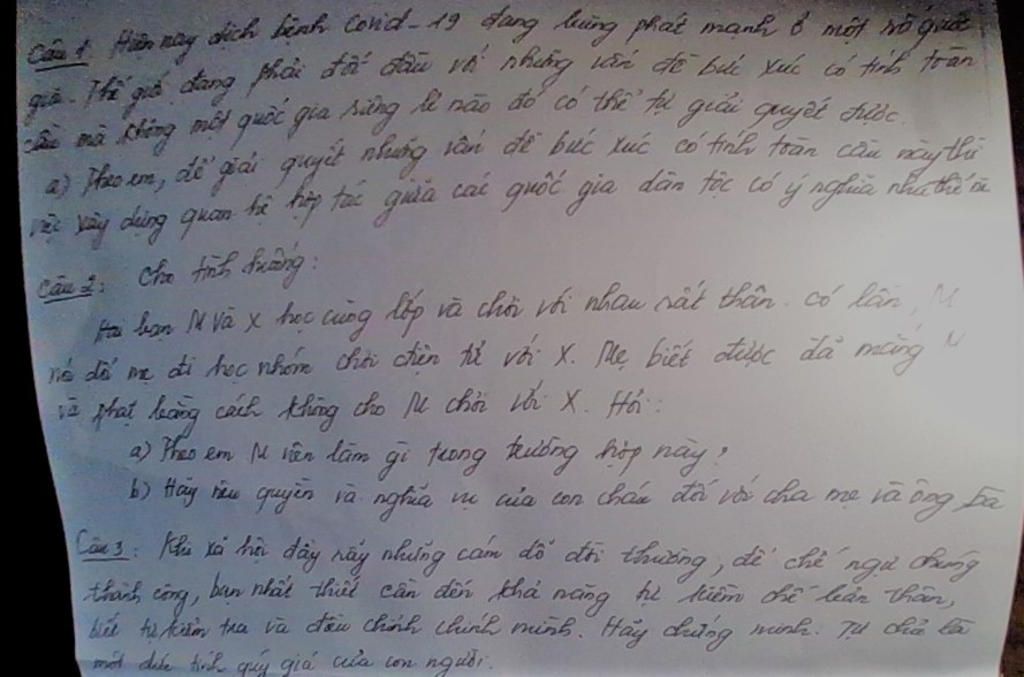 Câu 1 Hiện nay dịch bệnh Covid-19 đang bùng phát mạnh ở một số quốc
gia. Thế giới đang phải đối đầu với những vấn đề bức xúc có tính toàn
cầu mà không một quốc gia riêng lẻ nào đó có thể tự giải quyết được.
a) Theo em, để giải quyết những vấn đề bức xúc có tính toàn cầu này thì
việc xây dựng quan hệ hợp tác giữa các quốc gia dân tộc có ý nghĩa như thế nào
Câu 2: Cho tình huống:
Hai bạn M và X học cùng lớp và chơi với nhau rất thân. có lần, M
nói dối mẹ đi học nhóm chơi điện tử với X. Mẹ biết được đã mắng M
và phạt bằng cách không cho M chơi với X. Hỏi:
a) Theo em M nên làm gì trong trường hợp này?
b) Hãy nêu quyền và nghĩa vụ của con cháu đối với cha mẹ và ông bà
Câu 3: Khi xã hội đầy rẫy những cám dỗ đời thường, để chế ngự chúng
thành công, bạn nhất thiết cần đến khả năng tự kiềm chế bản thân,
biết tự kiểm tra và điều chỉnh chính mình. Hãy chứng minh: Tự chủ là
một đức tính quý giá của con người.